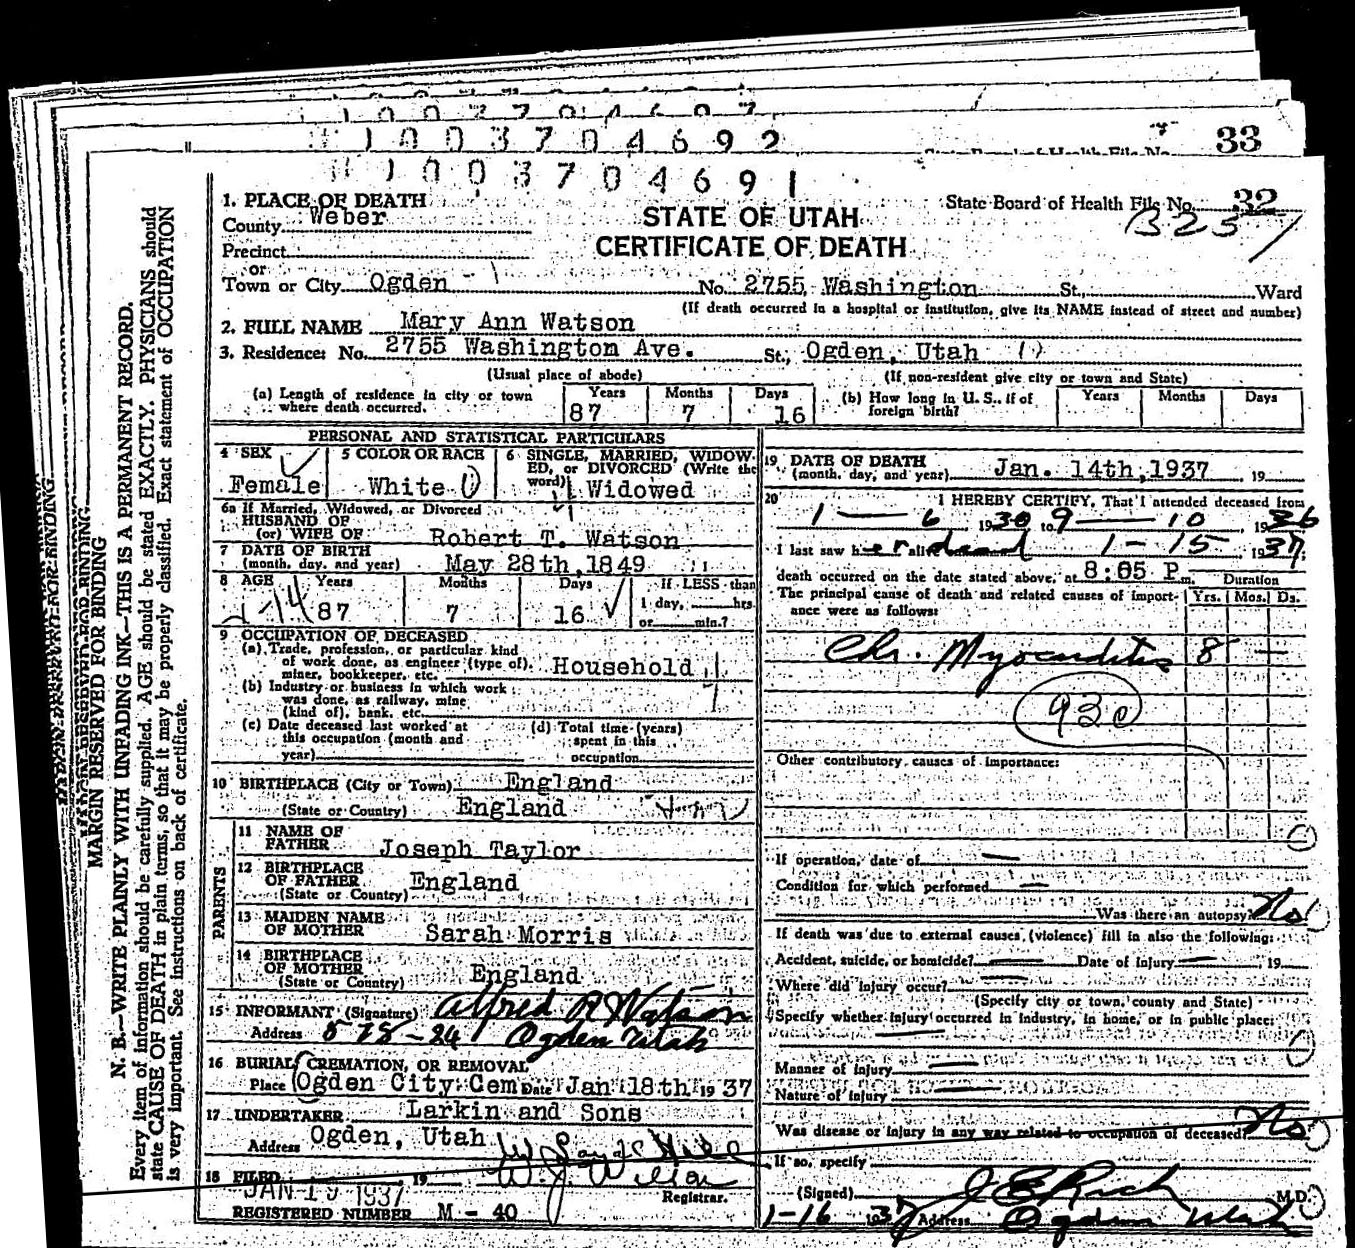 1003704692
33
1003704691
1. PLACE OF DEATH
County Weber
STATE OF UTAH
CERTIFICATE OF DEATH
State Board of Health File No. 32
Precinct
or
Town or City Ogden No. 2755 Washington St. Ward
(If death occurred in a hospital or institution, give its NAME instead of street and number)
2. FULL NAME Mary Ann Watson
3. Residence: No. 2755 Washington Ave. St., Ogden, Utah
(Usual place of abode) (If non-resident give city or town and State)
(a) Length of residence in city or town where death occurred. Years 87 Months 7 Days 16
(b) How long in U. S., if of foreign birth? Years Months Days
PERSONAL AND STATISTICAL PARTICULARS
4 SEX Female
5 COLOR OR RACE White
6 SINGLE, MARRIED, WIDOWED, or DIVORCED (Write the word) Widowed
6a If Married, Widowed, or Divorced
HUSBAND OF
(or) WIFE OF Robert T. Watson
7 DATE OF BIRTH
(month, day, and year) May 28th, 1849
8 AGE Years 87 Months 7 Days 16 If LESS than 1 day, hrs. or min.?
9 OCCUPATION OF DECEASED
(a) Trade, profession, or particular kind
of work done, as engineer (type of),
miner, bookkeeper, etc. Household
(b) Industry or business in which work
was done, as railway, mine
(kind of), bank, etc.
(c) Date deceased last worked at
this occupation (month and
year)
(d) Total time (years)
spent in this
occupation
10 BIRTHPLACE (City or Town) England
(State or Country) England
PARENTS
11 NAME OF
FATHER Joseph Taylor
12 BIRTHPLACE
OF FATHER England
(State or Country)
13 MAIDEN NAME
OF MOTHER Sarah Morris
14 BIRTHPLACE
OF MOTHER
(State or Country) England
15 INFORMANT (Signature) Alfred R Watson
Address 578-24 Ogden Utah
16 BURIAL, CREMATION, OR REMOVAL
Place Ogden City Cem Date Jan 18th 1937
17 UNDERTAKER Larkin and Sons
Address Ogden, Utah
18 FILED JAN 19 1937 19
Registrar.
REGISTERED NUMBER M - 40
19 DATE OF DEATH
(month, day, and year) Jan. 14th, 1937 19
20 I HEREBY CERTIFY, That I attended deceased from
1 — 6 1930 to 9 — 10 1936
I last saw her dead 1 - 15 1937;
death occurred on the date stated above, at 8:05 P m. Duration
The principal cause of death and related causes of importance were as follows: Yrs. Mos. Ds.
Chr. Myocarditis 8 —
93c
Other contributory causes of importance:
If operation, date of —
Condition for which performed —
Was there an autopsy? No
If death was due to external causes (violence) fill in also the following:
Accident, suicide, or homicide? — Date of injury — 19
Where did injury occur? —
(Specify city or town, county and State)
Specify whether injury occurred in industry, in home, or in public place:
Manner of injury —
Nature of injury —
Was disease or injury in any way related to occupation of deceased? No
If so, specify
(Signed) J E Rich M.D.
1-16 1937 Address Ogden Utah
MARGIN RESERVED FOR BINDING
N. B.—WRITE PLAINLY WITH UNFADING INK—THIS IS A PERMANENT RECORD.
Every item of information should be carefully supplied. AGE should be stated EXACTLY. PHYSICIANS should
state CAUSE OF DEATH in plain terms, so that it may be properly classified. Exact statement of OCCUPATION
is very important. See instructions on back of certificate.